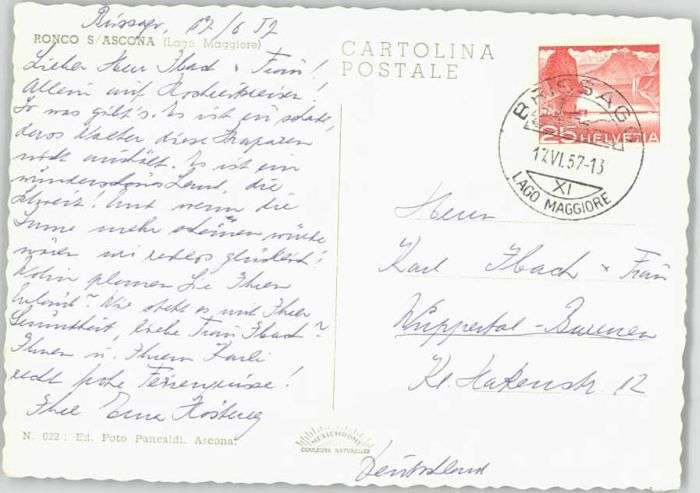 Brissago, 17/6 57
RONCO S/ASCONA (Lago Maggiore)
Lieber Herr Ibach + Frau!
Allein auf Hochzeitsreise!
So was gibt's. Es ist zu schade,
dass Walter diese Strapazen
nicht aushält. Es ist ein
wunderschönes Land, die
Schweiz! Und wenn die
Sonne mehr scheinen würde
wären wir restlos glücklich!
Wohin planen Sie Ihren
Urlaub? Wie steht es mit Ihrer
Gesundheit, liebe Frau Ibach?
Ihnen u. Ihrem Karli
recht frohe Feriengrüsse!
Ihre Erna
N. 022 : Ed. Foto Pancaldi, Ascona
MEXICHROME
COULEURS NATURELLES
CARTOLINA
POSTALE
25 HELVETIA
BRISSAGO
17.VI.57-13
XI
LAGO MAGGIORE
Herrn
Karl Ibach + Frau
Wuppertal-Barmen
Kl. Hakenstr. 12
Deutschland